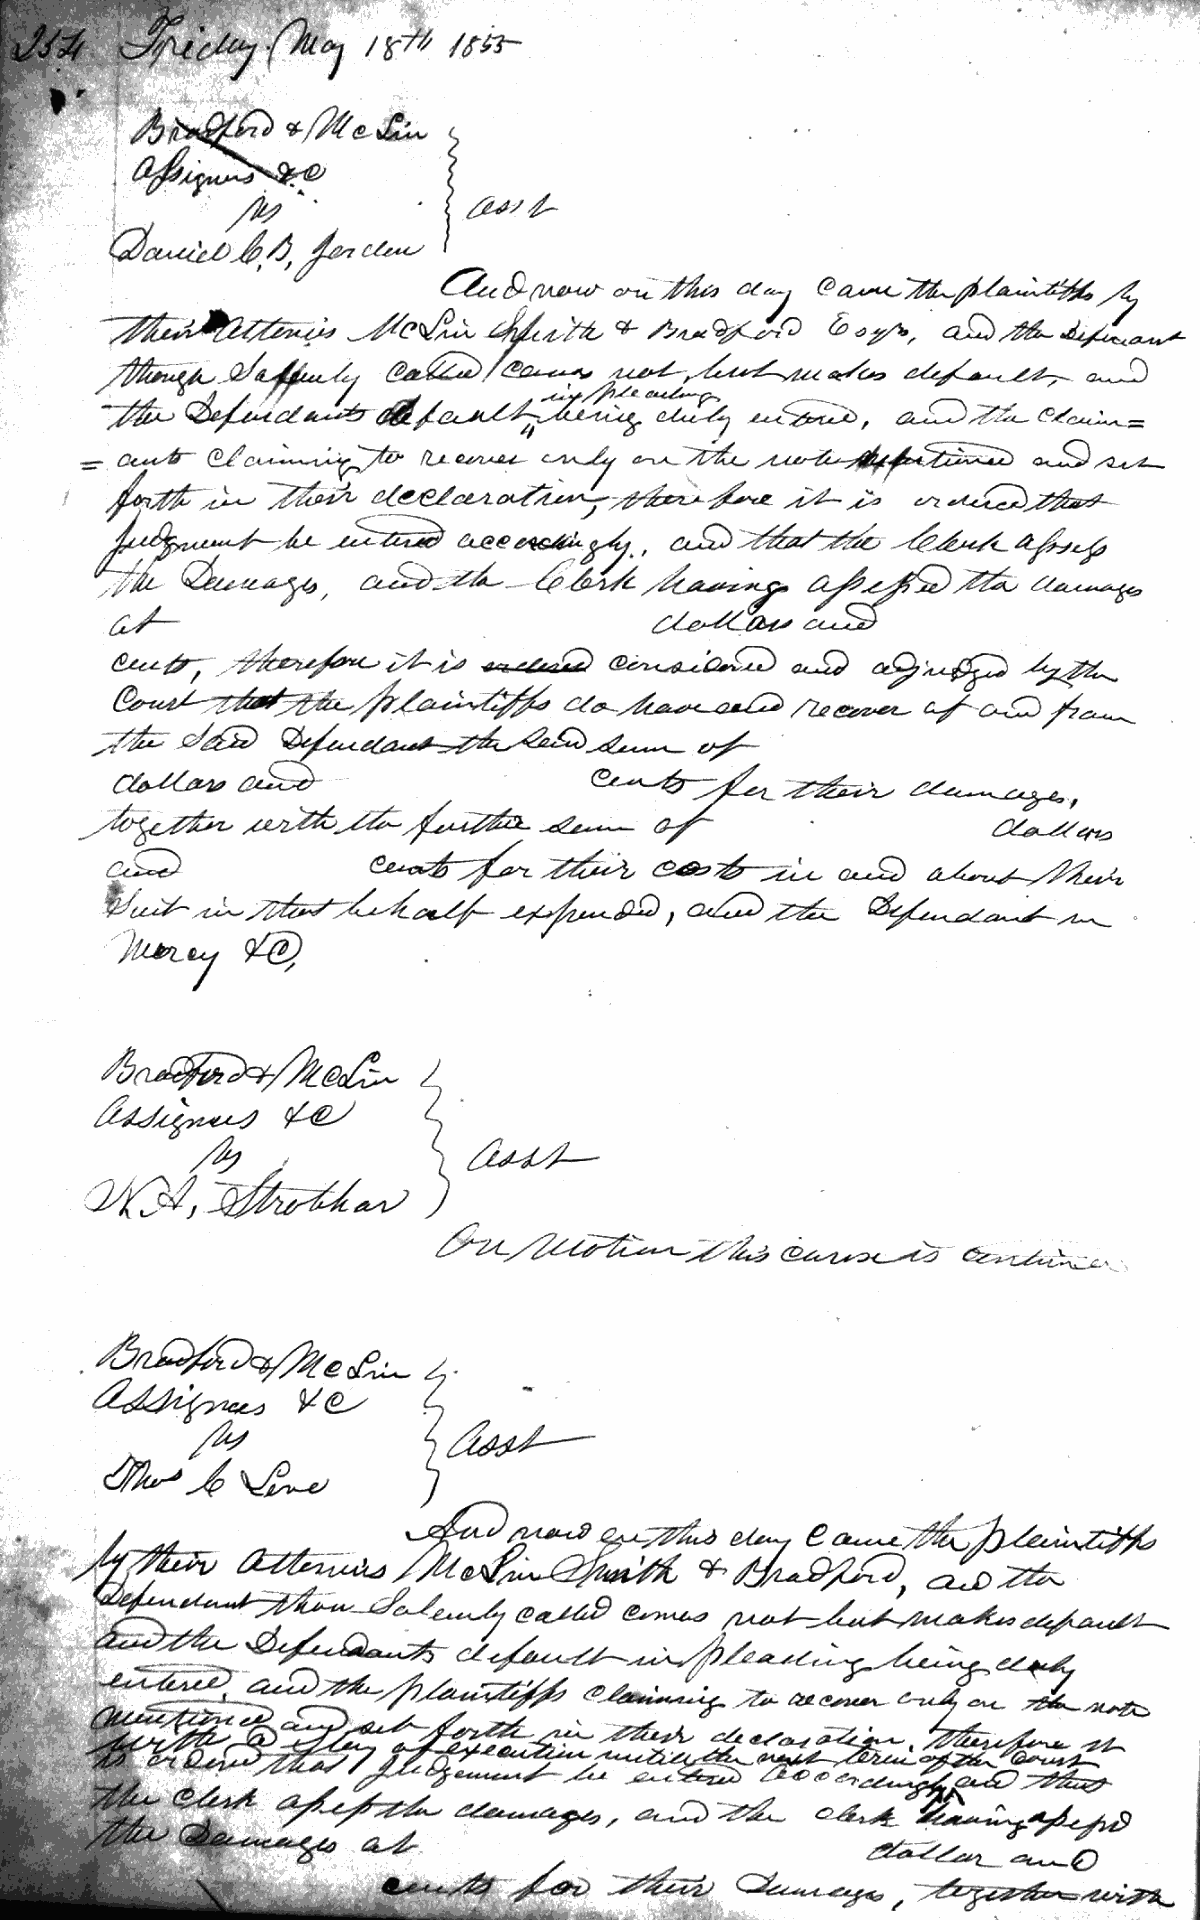 254 Friday May 18th 1855
Bradford & McLin
Assignees &C
vs
asst
Daniel C. B. Jorden
And now on this day came the plaintiffs by
their Attornies McLin Smith & Bradford Esqrs, and the Defendant
though Solemnly called comes not, but makes default, and
in pleading
the Defendants default being duly entered, and the claim=
=ants claiming to recover only on the note mentioned and set
forth in their declaration, therefore it is ordered that
Judgment be entered accordingly, and that the Clerk assess
the Damages, and the Clerk having assessed the damages
at dollars and
cents, therefore it is ordered considered and adjudged by the
Court that the plaintiffs do have and recover of and from
the Said Defendant the Said sum of
dollars and cents for their damages,
together with the further sum of dollars
and cents for their costs in and about their
Suit in that behalf expended, and the Defendant in
Mercy &C,
Bradford & McLin
Assignees &C
vs
Asst
N. A. Strobhar
On Motion this cause is continued
Bradford & McLin
Assignees &C
vs
Asst
Thos C Love
And now on this day Came the plaintiffs
by their Attornies McLin Smith & Bradford, and the
Defendant thou Solemly called comes not but makes default
and the Defendants default in pleading being duly
entered, and the plaintiffs claiming to recover only on the note
mentioned and set forth in their declaration, therefore it
with a stay of execution until the next term of the Court
is ordered that Judgement be entered accordingly and that
the clerk assess the damages, and the clerk having assessed
the Damages at dollar and
cents for their Damages, together with